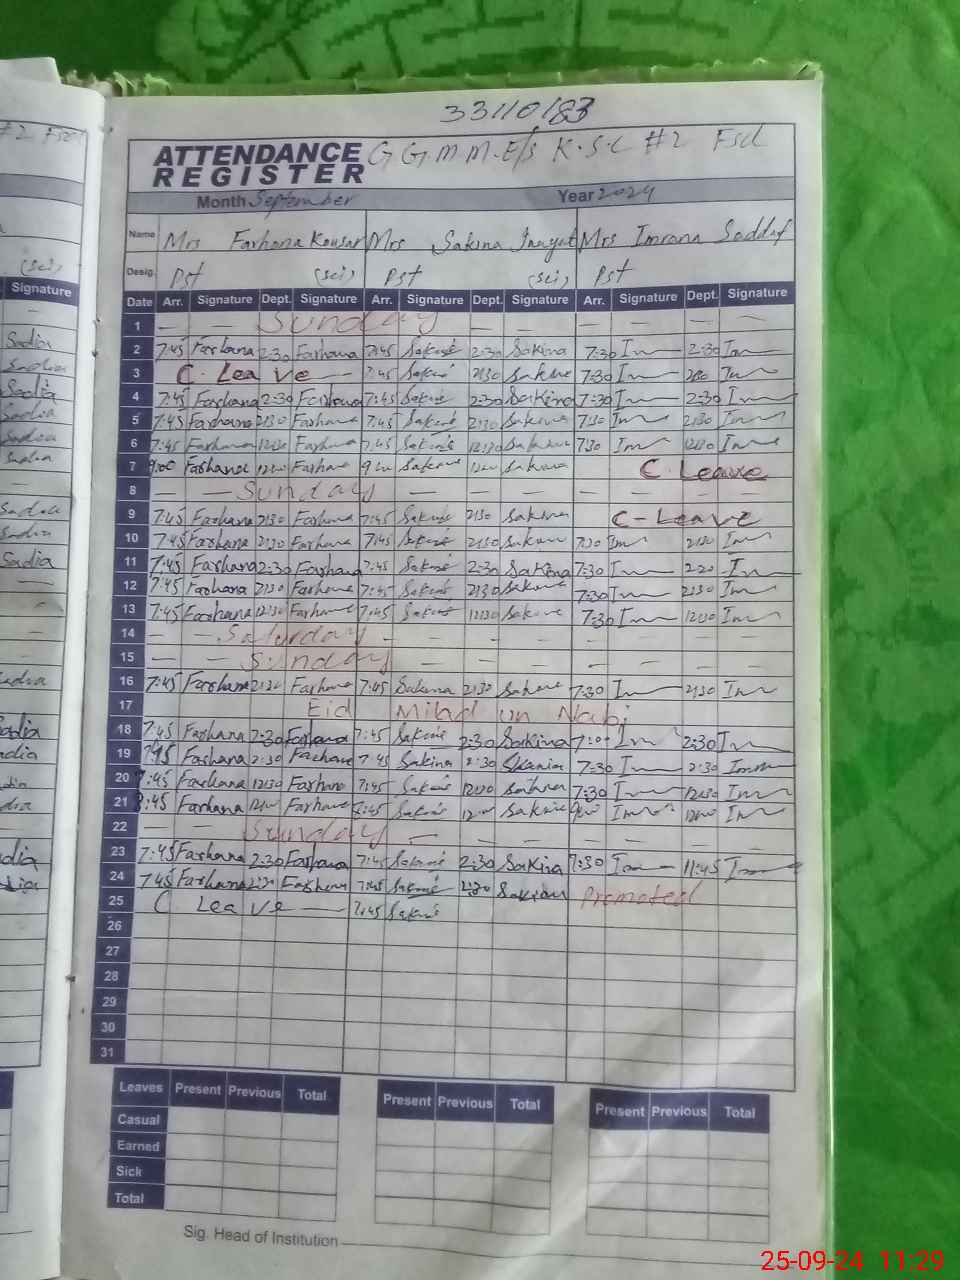 33110183
ATTENDANCE REGISTER G G M M.E/S K.S.C #2 Fsd
Month September Year 2024
Name Mrs Farhana Kousar Mrs Sakina Inayat Mrs Imrana Saddaf
Desig. Pst (sci) Pst (sci) Pst
Signature Date Arr. Signature Dept. Signature Arr. Signature Dept. Signature Arr. Signature Dept. Signature
1 — — Sunday — — — — — —
2 7:45 Farhana 2:30 Farhana 7:45 Sakina 2:30 Sakina 7:30 Im 2:30 Im
3 C. Leave — 7:45 Sakina 2:30 Sakina 7:30 Im 2:30 Im
4 7:45 Farhana 2:30 Farhana 7:45 Sakina 2:30 Sakina 7:30 Im 2:30 Im
5 7:45 Farhana 2:30 Farhana 7:45 Sakina 2:30 Sakina 7:30 Im 2:30 Im
6 7:45 Farhana 12:30 Farhana 7:45 Sakina 12:30 Sakina 7:30 Im 12:30 Im
7 9:00 Farhana Farhana Sakina Sakina C. Leave
8 — — Sunday — — — — — —
9 7:45 Farhana 2:30 Farhana 7:45 Sakina 2:30 Sakina C-Leave
10 7:45 Farhana 2:30 Farhana 7:45 Sakina 2:30 Sakina 7:30 Im 2:30 Im
11 7:45 Farhana 2:30 Farhana 7:45 Sakina 2:30 Sakina 7:30 Im Im
12 7:45 Farhana 2:30 Farhana 7:45 Sakina 2:30 Sakina 7:30 Im 2:30 Im
13 7:45 Farhana 12:30 Farhana 7:45 Sakina 12:30 Sakina 7:30 Im 12:30 Im
14 — — Saturday — — — — — —
15 — — Sunday — — — — — —
16 7:45 Farhana 2:30 Farhana 7:45 Sakina 2:30 Sakina 7:30 Im 2:30 Im
17 Eid Milad un Nabi
18 7:45 Farhana 2:30 Farhana 7:45 Sakina 2:30 Sakina Im 2:30 Im
19 7:45 Farhana 2:30 Farhana 7:45 Sakina 2:30 Sakina 7:30 Im 2:30 Im
20 7:45 Farhana 12:30 Farhana 7:45 Sakina 12:30 Sakina 7:30 Im 12:30 Im
21 8:45 Farhana Farhana 8:45 Sakina Sakina Im Im
22 — — Sunday — — — — — —
23 7:45 Farhana 2:30 Farhana 7:45 Sakina 2:30 Sakina 7:30 Im 11:45 Im
24 7:45 Farhana 2:30 Farhana 7:45 Sakina 2:30 Sakina Promoted
25 C. Leave — 7:45 Sakina
26
27
28
29
30
31
Leaves Present Previous Total Present Previous Total Present Previous Total
Casual
Earned
Sick
Total
Sig. Head of Institution
25-09-24 11:29